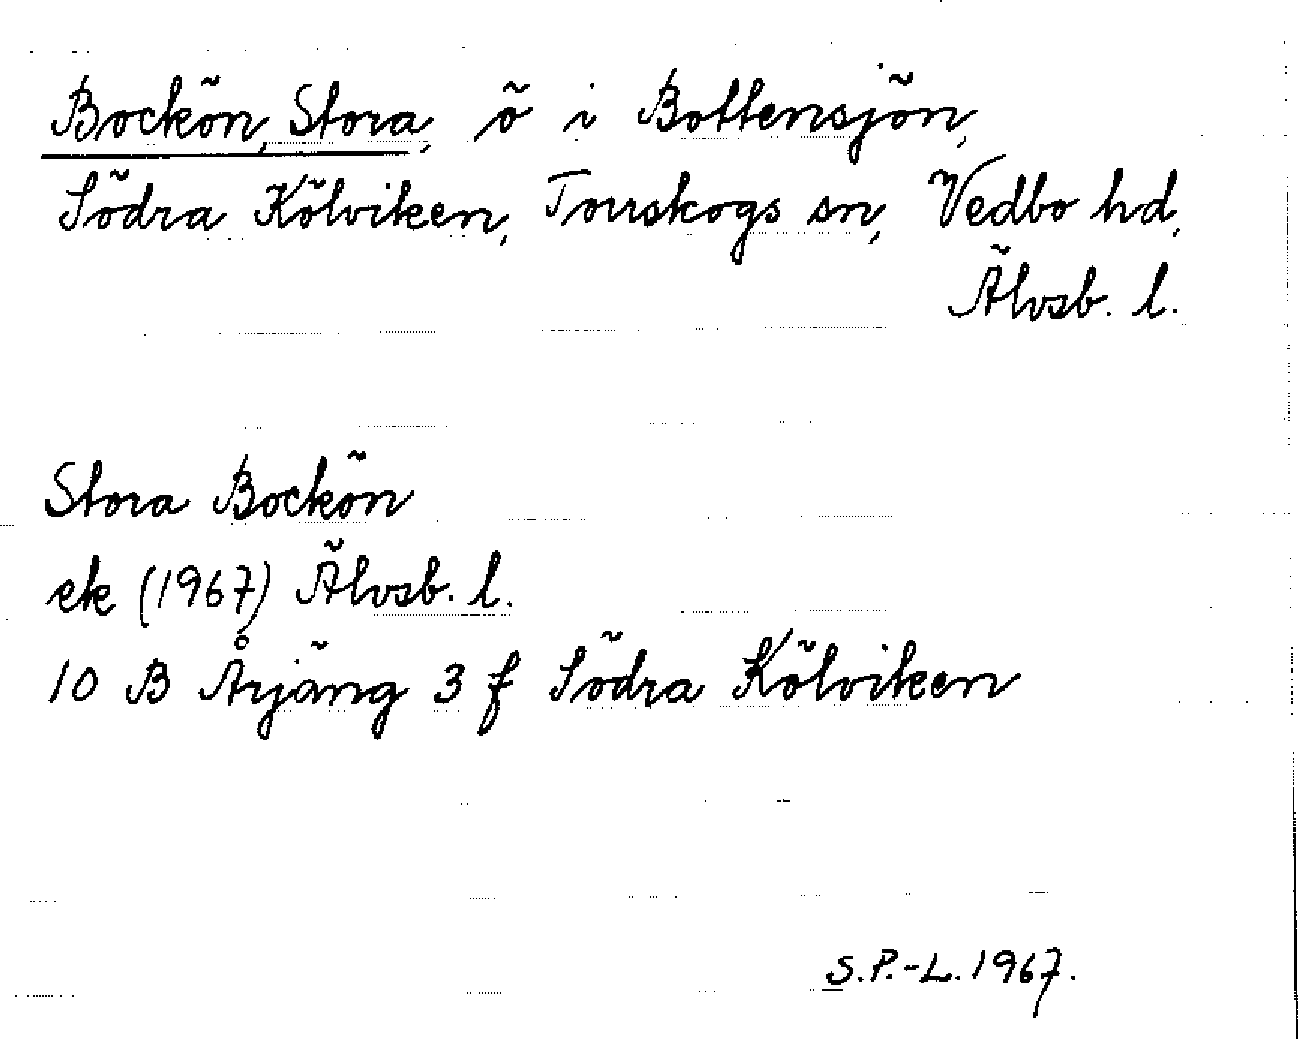 Bockön, Stora, ö i Bottensjön,
Södra Kölviken, Torrskogs sn, Vedbo hd,
Älvsb. l.
Stora Bockön
ek (1967) Älvsb. l.
10 B Årjäng 3 f Södra Kölviken
S.P.-L. 1967.